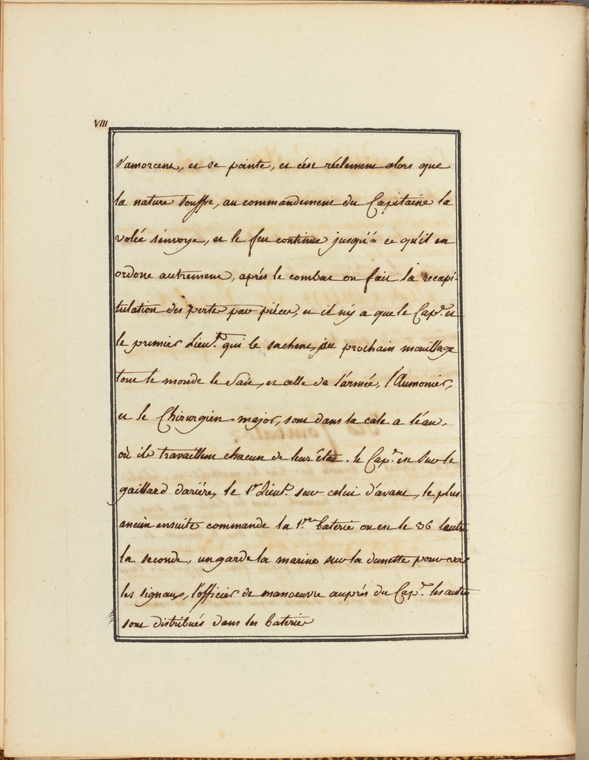 VIII
s'amorcent, et se pointe, et c'est réelement alors que
la nature souffre, au commandement du Capitaine la
volée s'envoye, et le feu continue jusqu'à ce qu'il en
ordone autrement, après le combat on fait la recapi-
tulation des perte par pièces, et il n'y a que le Cap.ne et
le premier Lieu.t qui le sachent, au prochain mouillage
tout le monde le sait, et celle de l'armée, l'Aumonier,
et le Chirurgien-major, sont dans la cale a l'eau.
où ils travaillent chacun de leur état. le Cap.ne est sur le
gaillard dariére, le 1er Lieut. sur celui d'avant, le plus
ancien ensuite commande la 1.ere baterie ou est le 36 l'autre
la seconde, un garde la marine sur la dunette pour voir
les signaux, l'officier de manoeuvre auprès du Cap.ne les autres
sont distribués dans les baterie